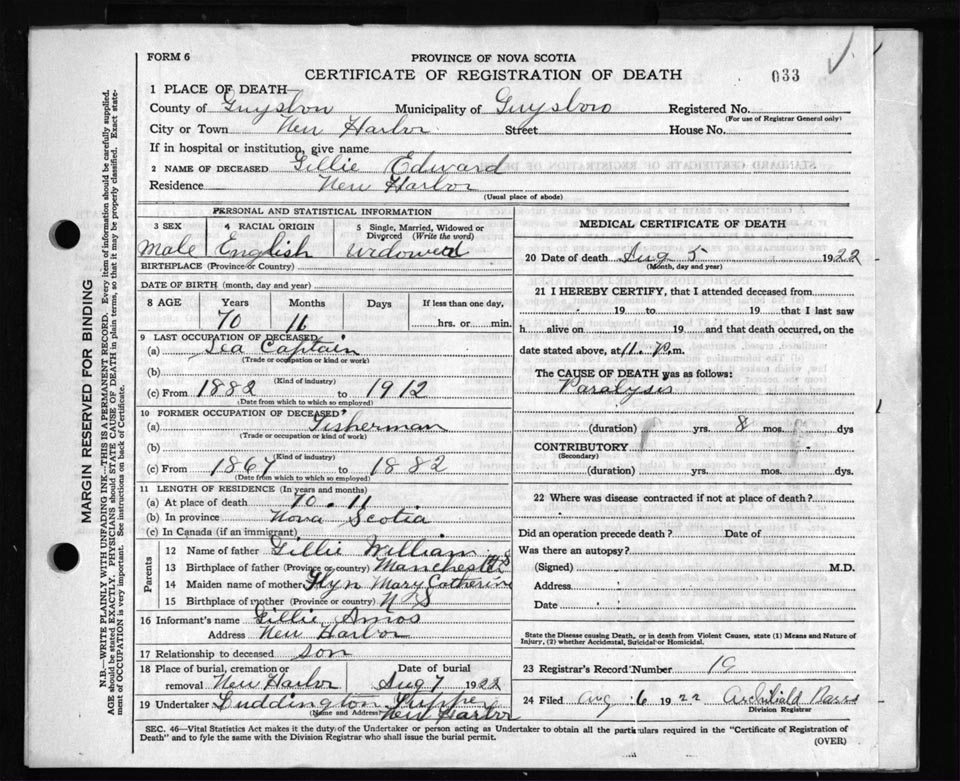 FORM 6
PROVINCE OF NOVA SCOTIA
CERTIFICATE OF REGISTRATION OF DEATH
033
1 PLACE OF DEATH—
County of Guysboro Municipality of Guysboro Registered No.
(For use of Registrar General only)
City or Town New Harbor Street House No.
If in hospital or institution, give name
2 NAME OF DECEASED Gillie Edward
Residence New Harbor
(Usual place of abode)
PERSONAL AND STATISTICAL INFORMATION
3 SEX 4 RACIAL ORIGIN 5 Single, Married, Widowed or Divorced (Write the word)
Male English Widowed
BIRTHPLACE (Province or Country)
DATE OF BIRTH (month, day and year)
8 AGE Years Months Days If less than one day,
70 11 hrs. or min.
9 LAST OCCUPATION OF DECEASED
(a) Sea Captain
(Trade or occupation or kind or work)
(b)
(Kind of industry)
(c) From 1882 to 1912
(Date from which to which so employed)
10 FORMER OCCUPATION OF DECEASED
(a) Fisherman
(Trade or occupation or kind of work)
(b)
(Kind of industry)
(c) From 1867 to 1882
(Date from which to which so employed)
11 LENGTH OF RESIDENCE (In years and months)
(a) At place of death 70.11
(b) In province Nova Scotia
(c) In Canada (if an immigrant)
Parents
12 Name of father Gillie William
13 Birthplace of father (Province or country) Manchester NS
14 Maiden name of mother Mary Catherine
15 Birthplace of mother (Province or country) N S
16 Informant's name Gillie Amos
Address New Harbor
17 Relationship to deceased son
18 Place of burial, cremation or removal New Harbor Date of burial Aug 7 1922
19 Undertaker Luddington
(Name and Address) New Harbor
MEDICAL CERTIFICATE OF DEATH
20 Date of death Aug 5 1922
(Month, day and year)
21 I HEREBY CERTIFY, that I attended deceased from
19 to 19 that I last saw
h alive on 19 and that death occurred, on
date stated above, at 11. P.m.
The CAUSE OF DEATH was as follows:
Paralysis
(duration) yrs. 8 mos. dys
CONTRIBUTORY
(Secondary)
(duration) yrs. mos. dys.
22 Where was disease contracted if not at place of death?
Did an operation precede death? Date of
Was there an autopsy?
(Signed) M.D.
Address
Date
State the Disease causing Death, or in death from Violent Causes, state (1) Means and Nature of
Injury, (2) whether Accidental, Suicidal or Homicidal.
23 Registrar's Record Number
24 Filed Aug 6 1922 Archibald
Division Registrar
SEC. 46—Vital Statistics Act makes it the duty of the Undertaker or person acting as Undertaker to obtain all the particulars required in the "Certificate of Registration of
Death" and to fyle the same with the Division Registrar who shall issue the burial permit.
(OVER)
MARGIN RESERVED FOR BINDING
N.B.—WRITE PLAINLY WITH UNFADING INK—THIS IS A PERMANENT RECORD. Every item of information should be carefully supplied.
AGE should be stated EXACTLY. PHYSICIANS should STATE CAUSE OF DEATH in plain terms, so that it may be properly classified. Exact state-
ment of OCCUPATION is very important. See instructions on back of Certificate.